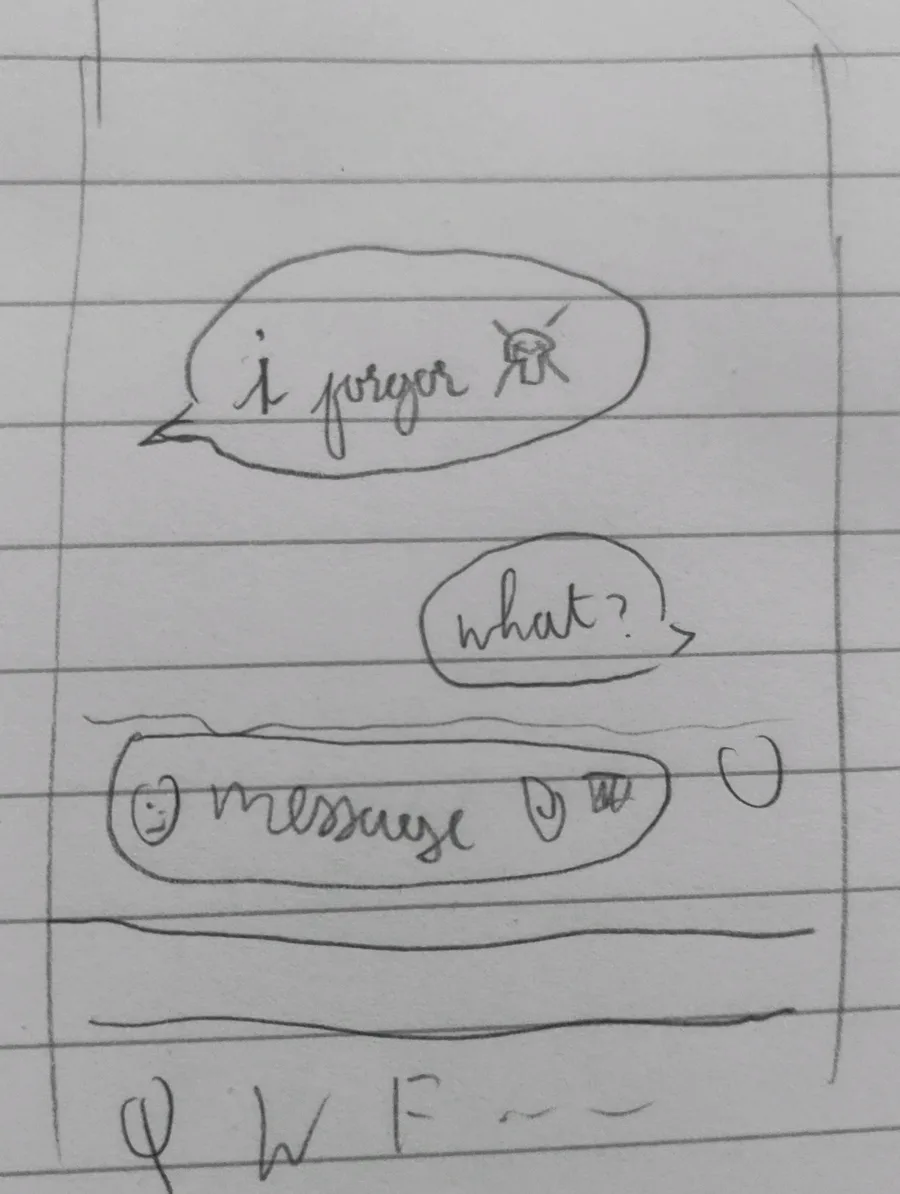 i forgor
what?
message
Q W E